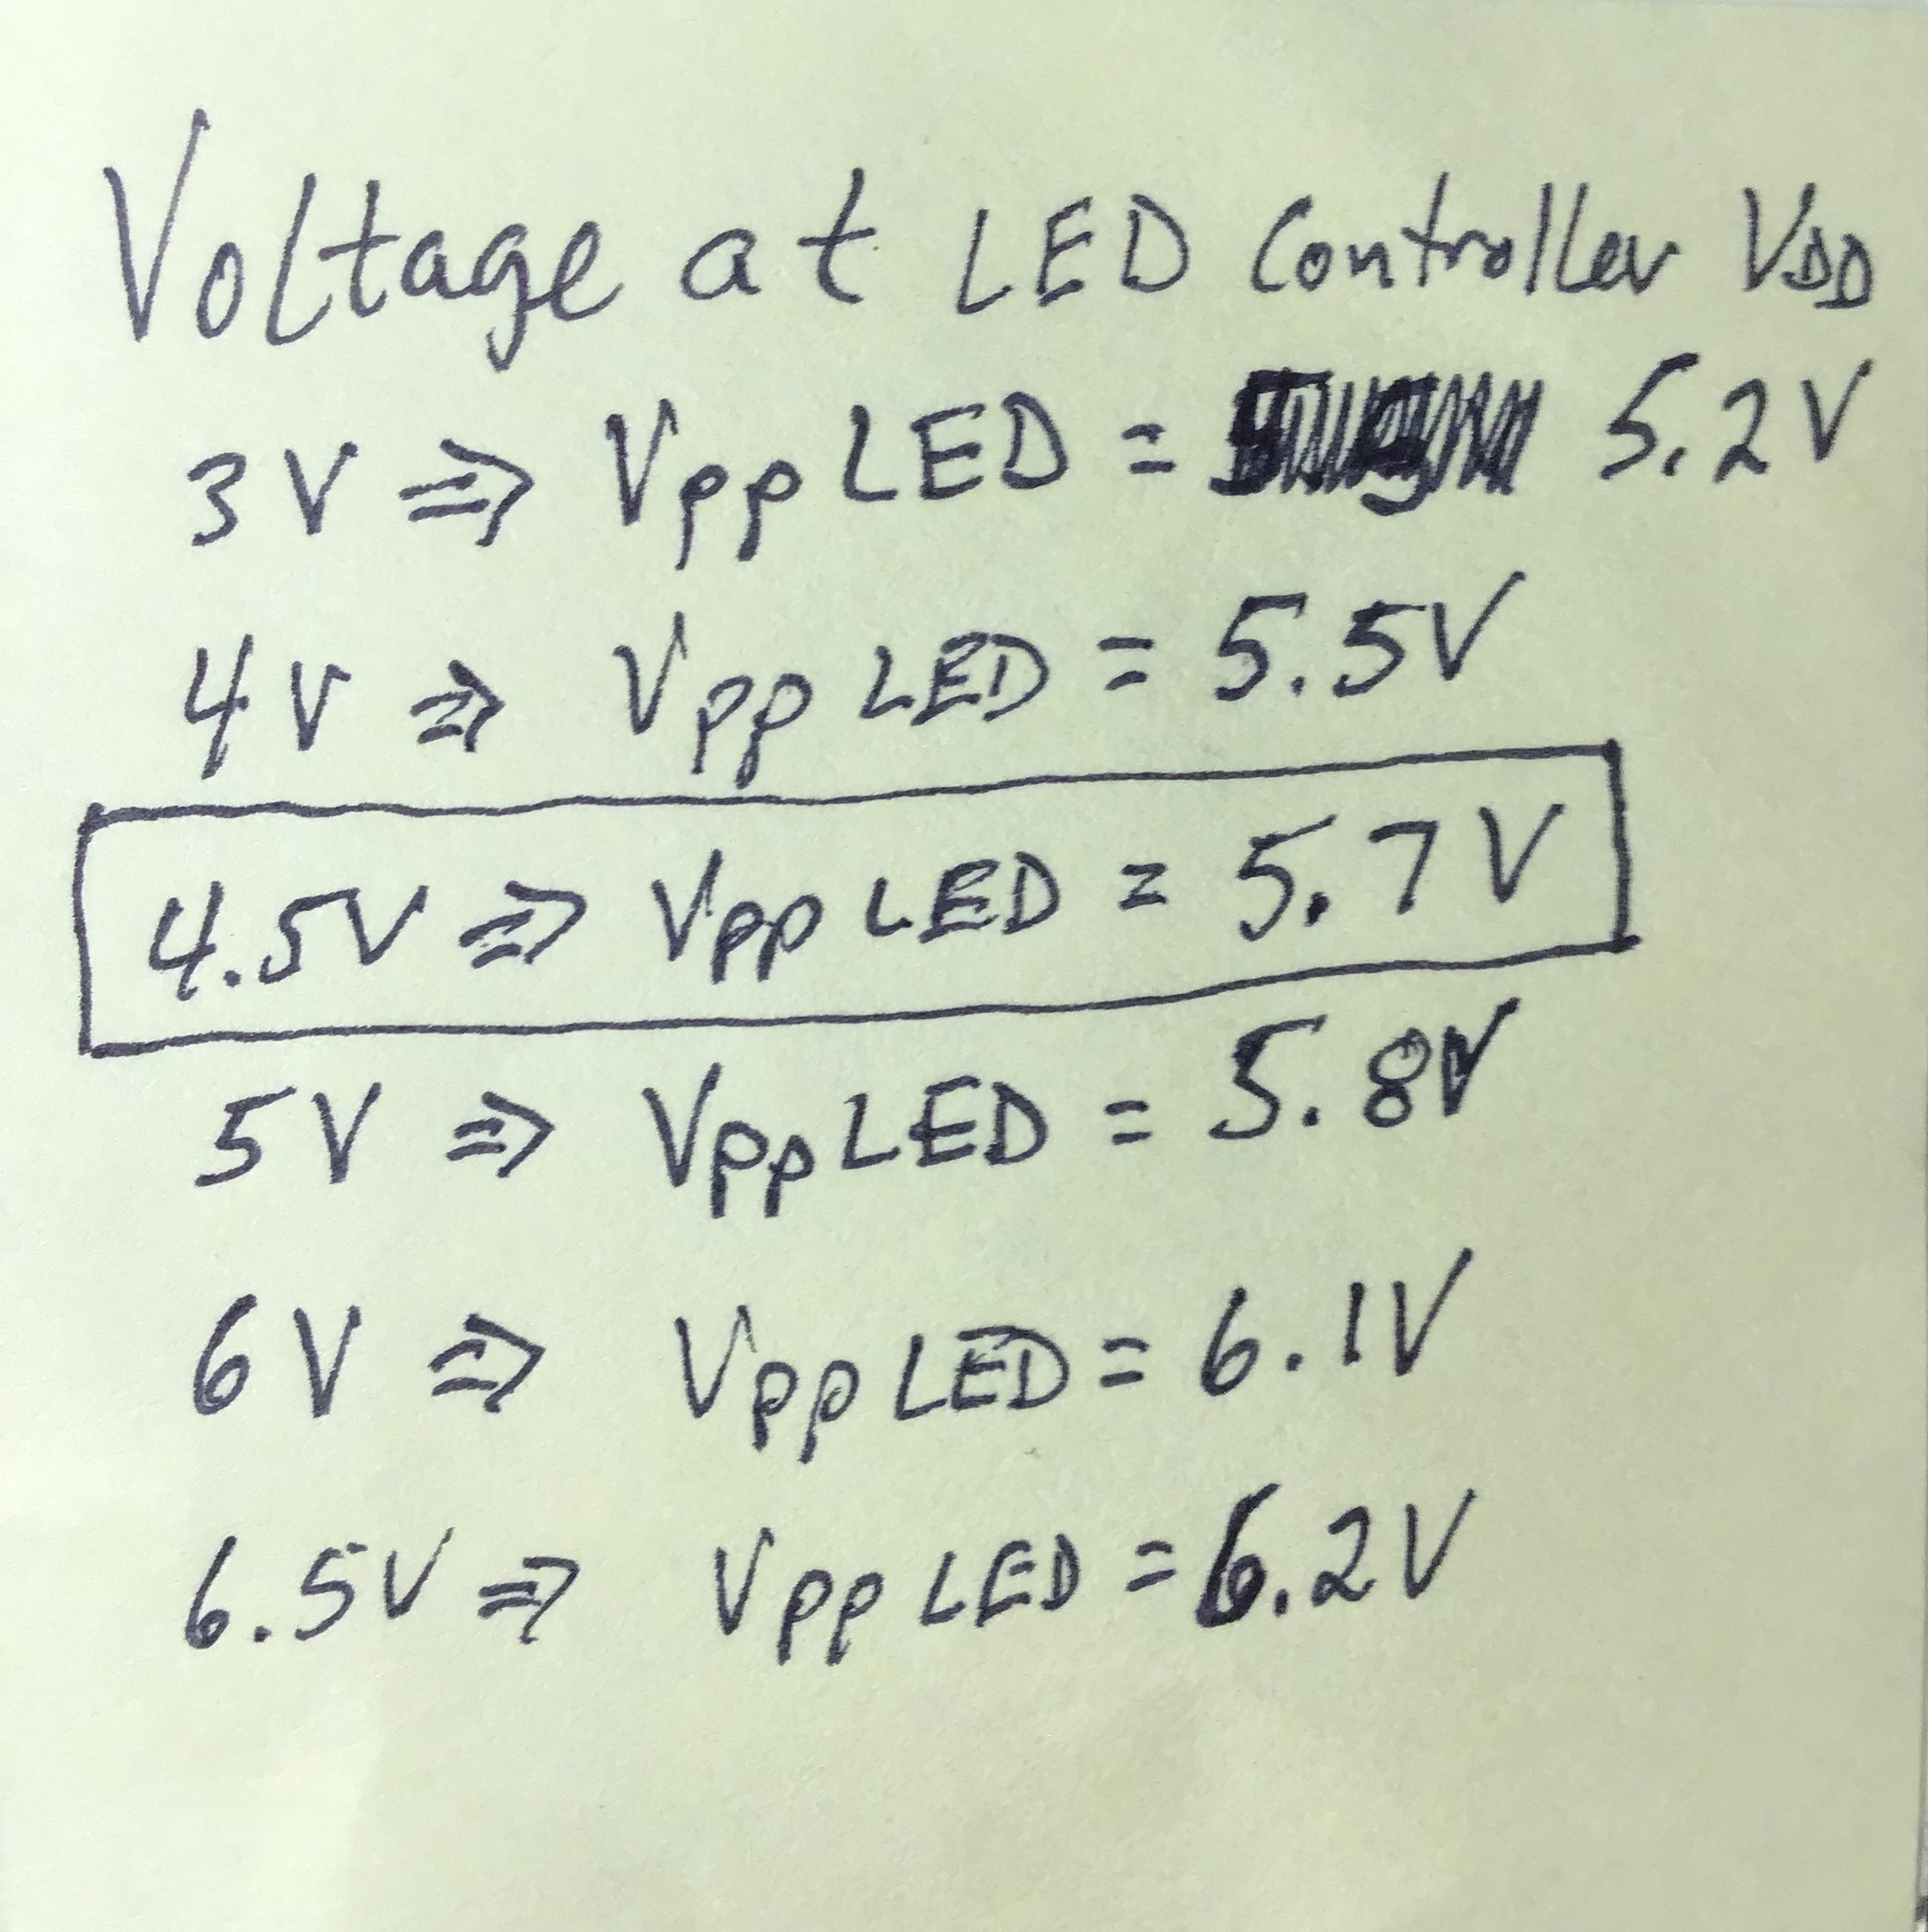 Voltage at LED Controller VDD
3V ⇒ Vpp LED = 5.2V
4V ⇒ Vpp LED = 5.5V
4.5V ⇒ Vpp LED = 5.7V
5V ⇒ Vpp LED = 5.8V
6V ⇒ Vpp LED = 6.1V
6.5V ⇒ Vpp LED = 6.2V